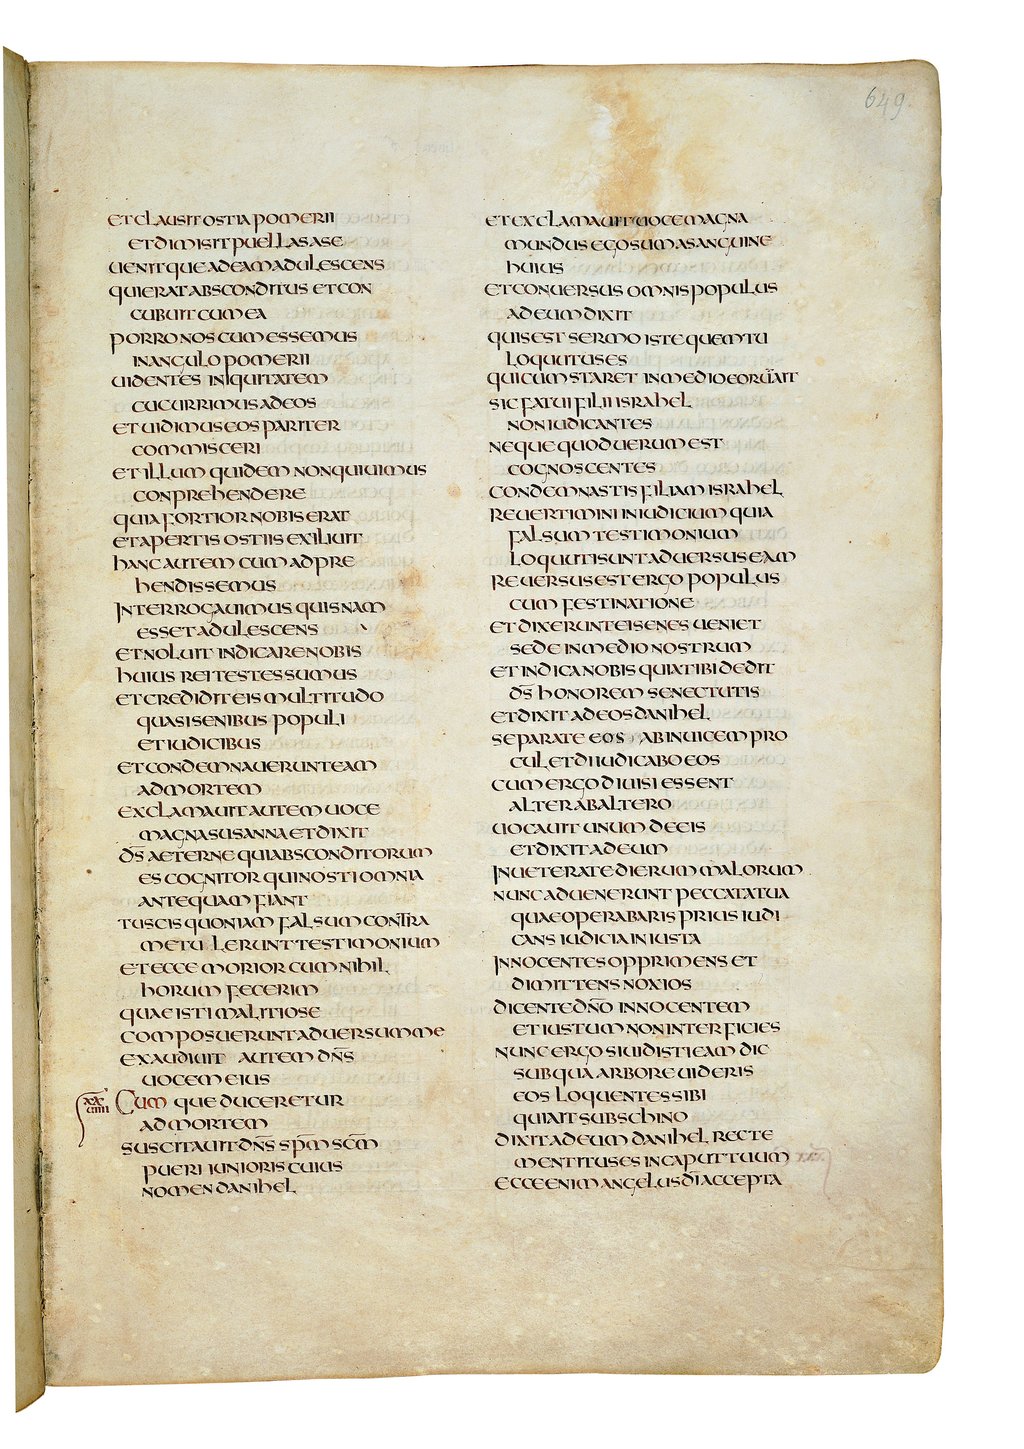 649.
ET CLAUSIT OSTIA POMERII
ET DIMISIT PUELLAS A SE
UENITQUE AD EAM ADULESCENS
QUI ERAT ABSCONDITUS ET CON
CUBUIT CUM EA
PORRO NOS CUM ESSEMUS
IN ANGULO POMERII
UIDENTES INIQUITATEM
CUCURRIMUS AD EOS
ET UIDIMUS EOS PARITER
COMMISCERI
ET ILLUM QUIDEM NON QUIUIMUS
CONPREHENDERE
QUIA FORTIOR NOBIS ERAT
ET APERTIS OSTIIS EXILIUIT
HANC AUTEM CUM ADPRE
HENDISSEMUS
INTERROGAUIMUS QUISNAM
ESSET ADULESCENS
ET NOLUIT INDICARE NOBIS
HUIUS REI TESTES SUMUS
ET CREDIDIT EIS MULTITUDO
QUASI SENIBUS POPULI
ET IUDICIBUS
ET CONDEMNAUERUNT EAM
AD MORTEM
EXCLAMAUIT AUTEM UOCE
MAGNA SUSANNA ET DIXIT
D̅S̅ AETERNE QUI ABSCONDITORUM
ES COGNITOR QUI NOSTI OMNIA
ANTEQUAM FIANT
TU SCIS QUONIAM FALSUM CONTRA
ME TULERUNT TESTIMONIUM
ET ECCE MORIOR CUM NIHIL
HORUM FECERIM
QUAE ISTI MALITIOSE
COMPOSUERUNT ADUERSUM ME
EXAUDIUIT AUTEM D̅N̅S̅
UOCEM EIUS
CUMQUE DUCERETUR
AD MORTEM
SUSCITAUIT D̅N̅S̅ S̅P̅M̅ S̅C̅M̅
PUERI IUNIORIS CUIUS
NOMEN DANIHEL
ET EXCLAMAUIT UOCE MAGNA
MUNDUS EGO SUM A SANGUINE
HUIUS
ET CONUERSUS OMNIS POPULUS
AD EUM DIXIT
QUIS EST SERMO ISTE QUEM TU
LOQUUTUS ES
QUI CUM STARET IN MEDIO EORU̅ AIT
SIC FATUI FILII ISRAHEL
NON IUDICANTES
NEQUE QUOD UERUM EST
COGNOSCENTES
CONDEMNASTIS FILIAM ISRAHEL
REUERTIMINI IN IUDICIUM QUIA
FALSUM TESTIMONIUM
LOQUUTI SUNT ADUERSUS EAM
REUERSUS EST ERGO POPULUS
CUM FESTINATIONE
ET DIXERUNT EI SENES UENI ET
SEDE IN MEDIO NOSTRUM
ET INDICA NOBIS QUIA TIBI DEDIT
D̅S̅ HONOREM SENECTUTIS
ET DIXIT AD EOS DANIHEL
SEPARATE EOS AB INUICEM PRO
CUL ET DIIUDICABO EOS
CUM ERGO DIUISI ESSENT
ALTER AB ALTERO
UOCAUIT UNUM DE EIS
ET DIXIT AD EUM
INUETERATE DIERUM MALORUM
NUNC ADUENERUNT PECCATA TUA
QUAE OPERABARIS PRIUS IUDI
CANS IUDICIA INIUSTA
INNOCENTES OPPRIMENS ET
DIMITTENS NOXIOS
DICENTE D̅N̅O̅ INNOCENTEM
ET IUSTUM NON INTERFICIES
NUNC ERGO SI UIDISTI EAM DIC
SUB QUA ARBORE UIDERIS
EOS LOQUENTES SIBI
QUI AIT SUB SCHINO
DIXIT AD EUM DANIHEL RECTE
MENTITUS ES IN CAPUT TUUM
ECCE ENIM ANGELUS D̅I̅ ACCEPTA